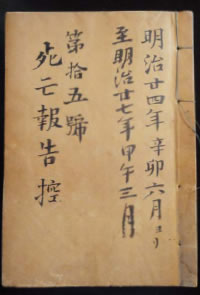 明治廿四年辛卯六月ヨリ
至明治廿七年甲午三月
第拾五號
死亡報告控